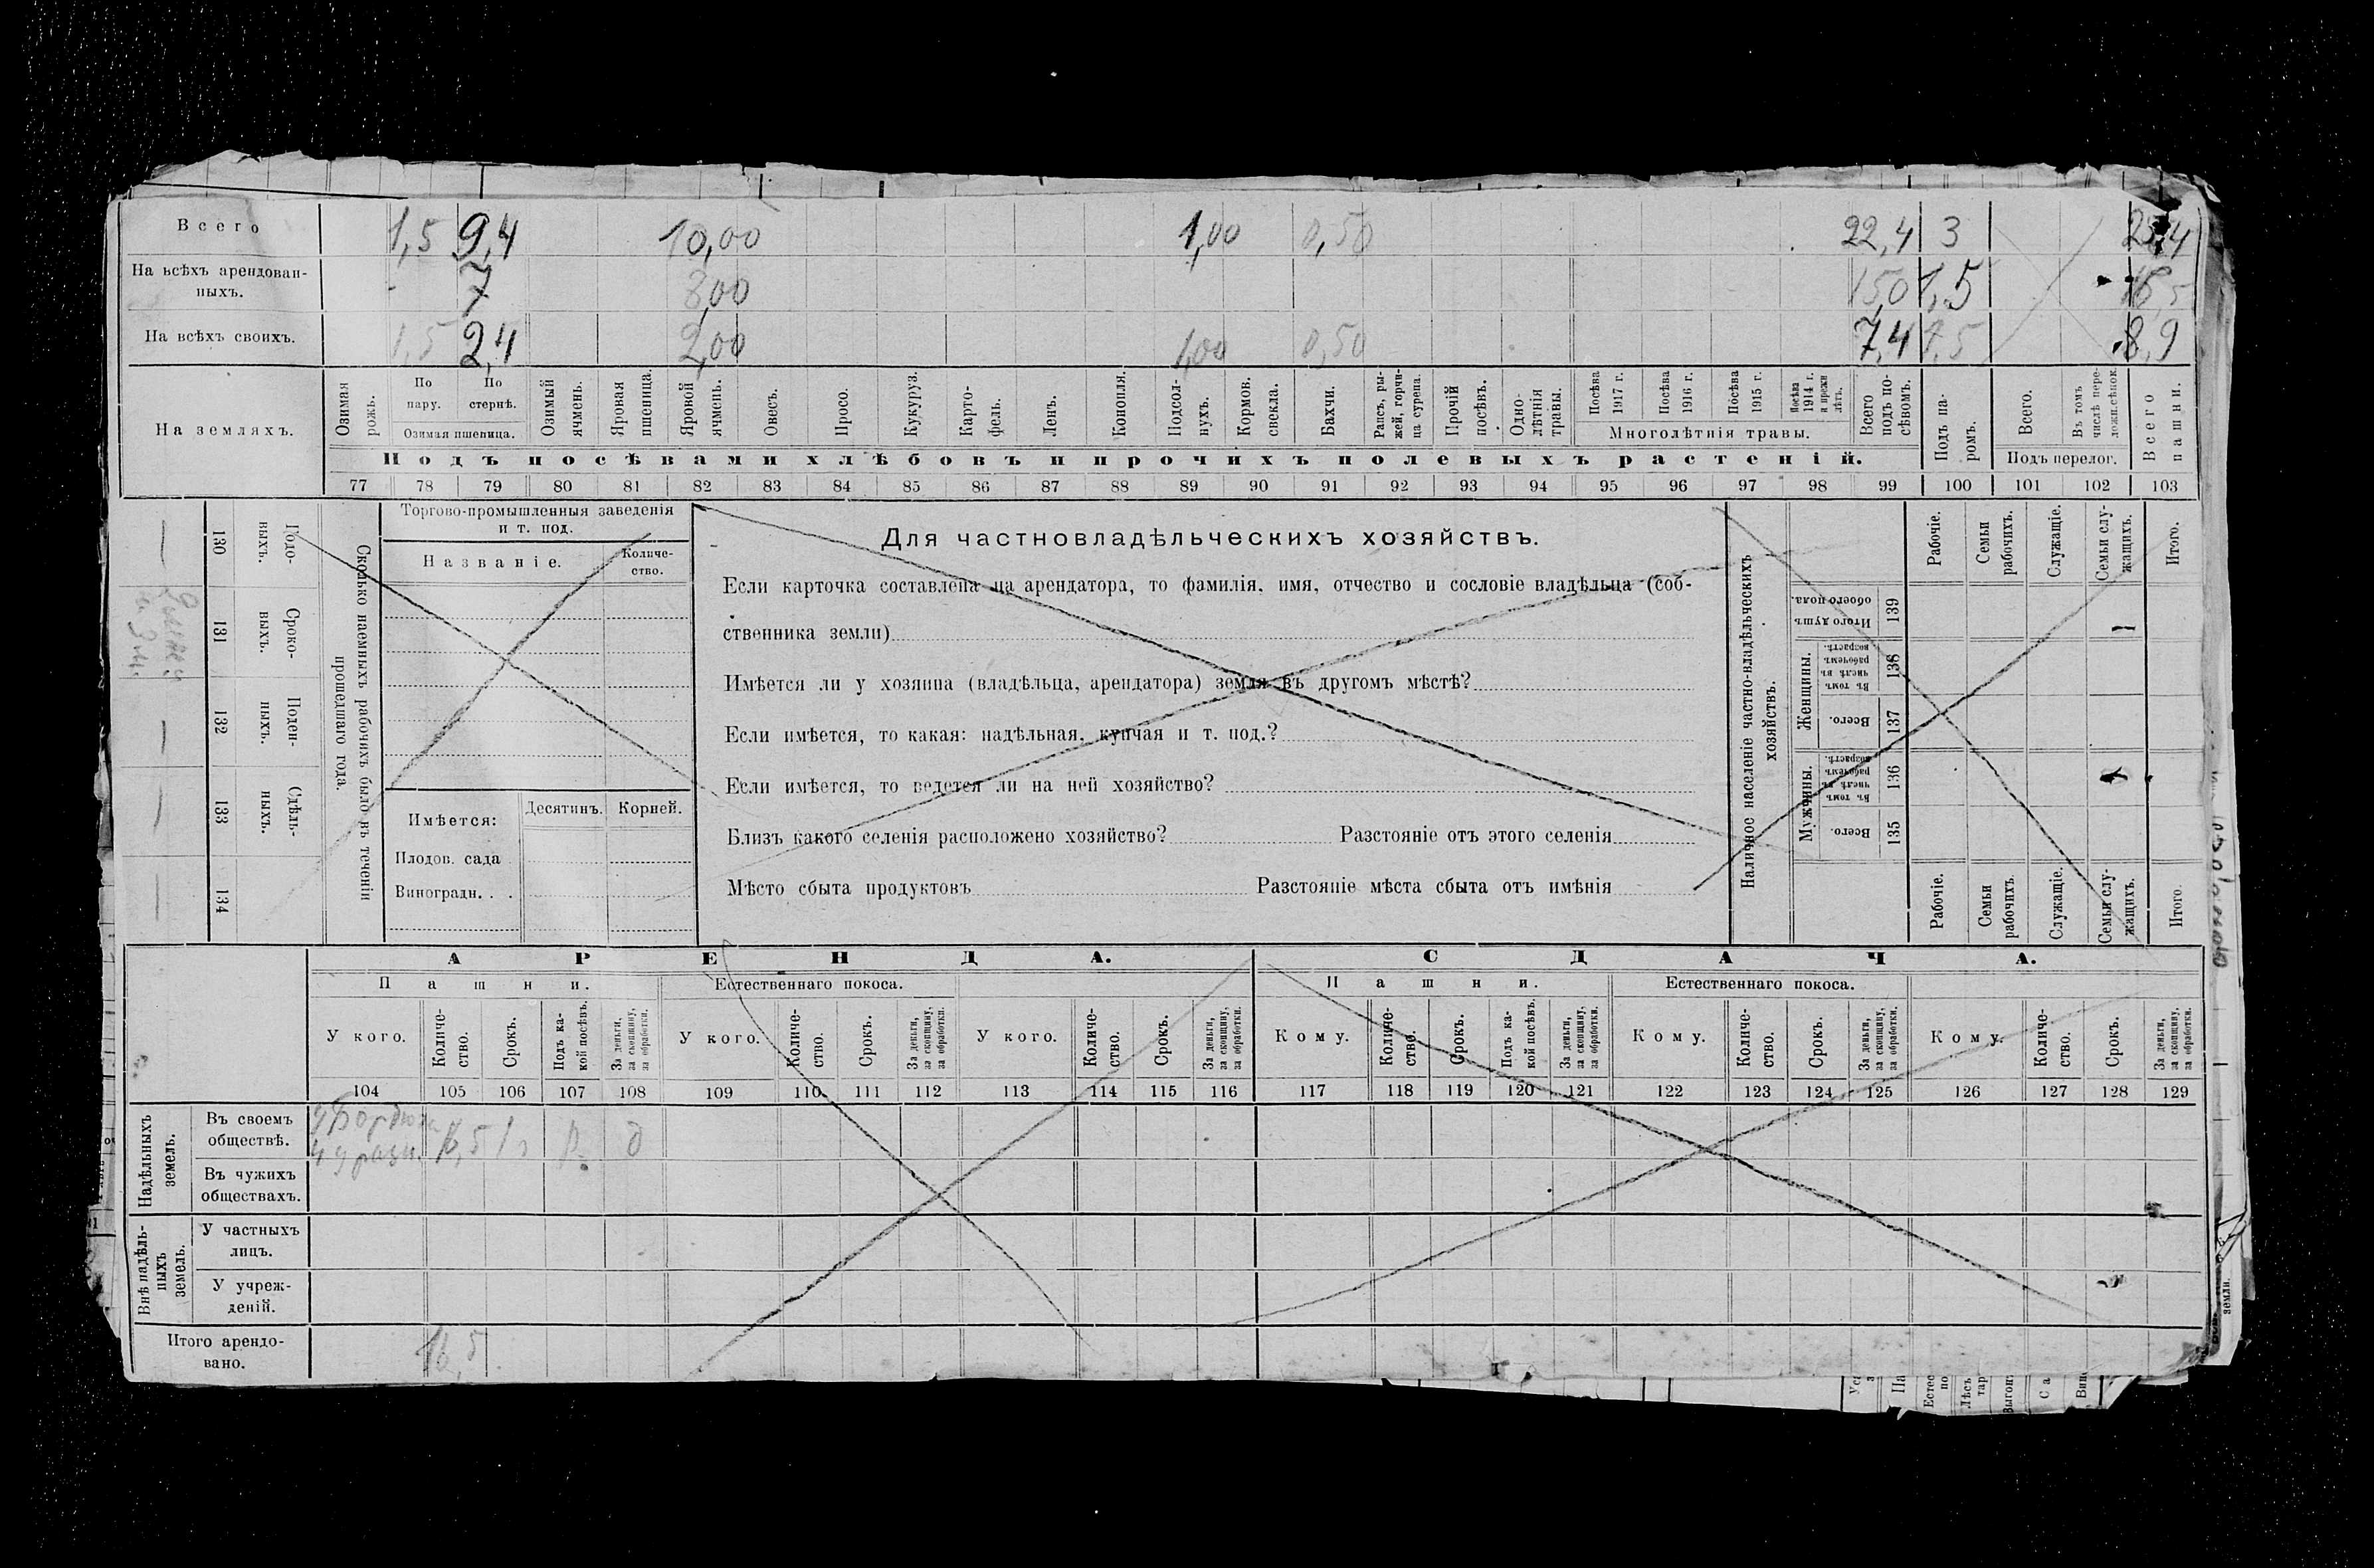 Всего 1,5 9,4 10,00 1,00 0,50 22,4 3 25,4
На всѣхъ арендован-
ныхъ. - 7 8,00 15,0 1,5 16,5
На всѣхъ своихъ. 1,5 2,4 2,00 1,00 0,50 7,4 1,5 8,9
На земляхъ.
Озимая рожь.
По пару.
По стернѣ.
Озимая пшеница.
Озимый ячмень.
Яровая пшеница.
Яровой ячмень.
Овесъ.
Просо.
Кукуруз.
Карто-
фель.
Ленъ.
Конопля.
Подсол-
нухъ.
Кормов.
свекла.
Бахчи.
Рапсъ, ры-
жей, горчи-
ца сурепа.
Прочій
посѣвъ.
Одно-
лѣтнія
травы.
Посѣва
1917 г.
Посѣва
1916 г.
Посѣва
1915 г.
Посѣва
1914 г.
и прежн
лѣтъ.
Многолѣтнія травы.
Всего
подъ по-
сѣвомъ.
Подъ па-
ромъ.
Всего.
Въ томъ
числѣ пере-
ложн.сѣнок.
Подъ перелог.
Всего
пашни.
Подъ посѣвами хлѣбовъ и прочихъ полевыхъ растеній.
77 78 79 80 81 82 83 84 85 86 87 88 89 90 91 92 93 94 95 96 97 98 99 100 101 102 103
Сколько наемныхъ рабочихъ было въ теченіи
прошедшаго года.
Годо-
выхъ.
Сроко-
выхъ.
Поден-
ныхъ.
Сдѣль-
ныхъ.
130 131 132 133 134
Торгово-промышленныя заведенія
и т. под.
Названіе.
Количе-
ство.
Имѣется:
Десятинъ.
Корней.
Плодов. сада
Виноградн. . .
Для частновладѣльческихъ хозяйствъ.
Если карточка составлена на арендатора, то фамилія, имя, отчество и сословіе владѣльца (соб-
ственника земли)
Имѣется ли у хозяина (владѣльца, арендатора) земля въ другомъ мѣстѣ?
Если имѣется, то какая: надѣльная, купчая и т. под.?
Если имѣется, то ведется ли на ней хозяйство?
Близъ какого селенія расположено хозяйство? Разстояніе отъ этого селенія
Мѣсто сбыта продуктовъ Разстояніе мѣста сбыта отъ имѣнія
Наличное населеніе частно-владѣльческихъ
хозяйствъ.
Мужчины.
Всего.
135
Въ томъ
числѣ въ
рабочемъ
возрастѣ.
136
Женщины.
Всего.
137
Въ томъ
числѣ въ
рабочемъ
возрастѣ.
138
Итого душъ
обоего пола.
139
Рабочіе.
Семьи
рабочихъ.
Служащіе.
Семьи слу-
жащихъ.
Итого.
Рабочіе.
Семьи
рабочихъ.
Служащіе.
Семьи слу-
жащихъ.
Итого.
АРЕНДА. СДАЧА.
Пашни. Естественнаго покоса. Пашни. Естественнаго покоса.
У кого.
Количе-
ство.
Срокъ.
Подъ ка-
кой посѣвъ.
За деньги,
за скопщину,
за обработки.
У кого.
Количе-
ство.
Срокъ.
За деньги,
за скопщину,
за обработки.
У кого.
Количе-
ство.
Срокъ.
За деньги,
за скопщину,
за обработки.
Кому.
Количе-
ство.
Срокъ.
Подъ ка-
кой посѣвъ.
За деньги,
за скопщину,
за обработки.
Кому.
Количе-
ство.
Срокъ.
За деньги,
за скопщину,
за обработки.
Кому.
Количе-
ство.
Срокъ.
За деньги,
за скопщину,
за обработки.
104 105 106 107 108 109 110 111 112 113 114 115 116 117 118 119 120 121 122 123 124 125 126 127 128 129
Надѣльныхъ
земель.
Въ своемъ
обществѣ.
Въ чужихъ
обществахъ.
Внѣ надѣль-
ныхъ
земель.
У частныхъ
лицъ.
У учреж-
деній.
Итого арендо-
вано. 16,5
земли.